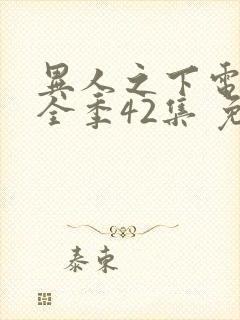 異人之下電
全季42集 免
泰東